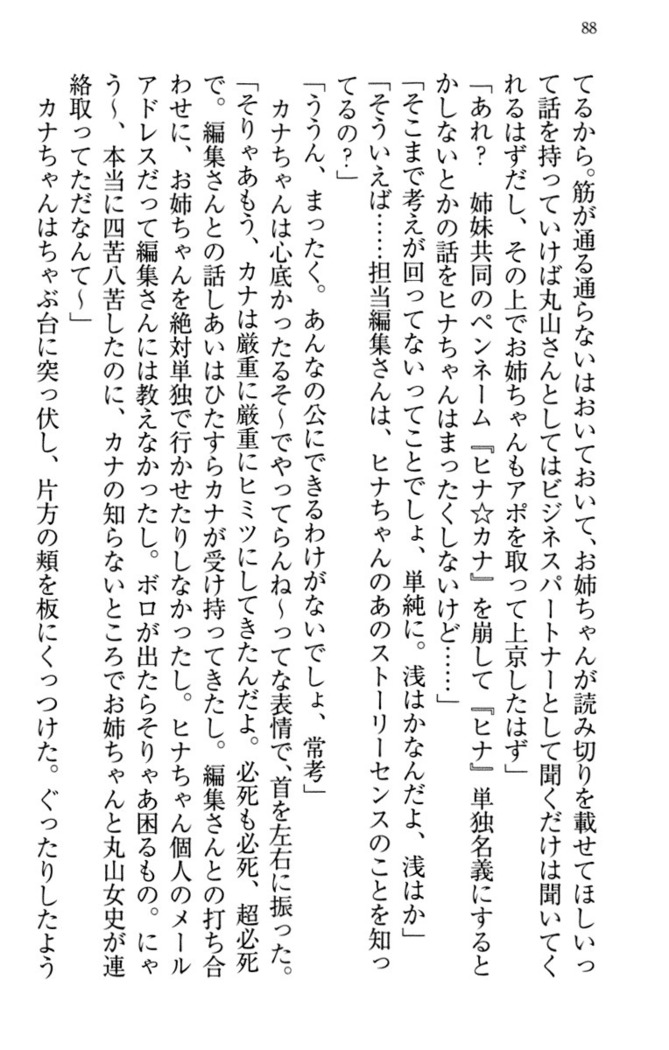 88
てるから。筋が通る通らないはおいておいて、お姉ちゃんが読み切りを載せてほしいっ
て話を持っていけば丸山さんとしてはビジネスパートナーとして聞くだけは聞いてく
れるはずだし、その上でお姉ちゃんもアポを取って上京したはず」
「あれ？　姉妹共同のペンネーム『ヒナ☆カナ』を崩して『ヒナ』単独名義にすると
かしないとかの話をヒナちゃんはまったくしないけど……」
「そこまで考えが回ってないってことでしょ、単純に。浅はかなんだよ、浅はか」
「そういえば……担当編集さんは、ヒナちゃんのあのストーリーセンスのことを知っ
てるの？」
「ううん、まったく。あんなの公にできるわけがないでしょ、常考」
　カナちゃんは心底かったるそ〜でやってらんね〜ってな表情で、首を左右に振った。
「そりゃあもう、カナは厳重に厳重にヒミツにしてきたんだよ。必死も必死、超必死
で。編集さんとの話しあいはひたすらカナが受け持ってきたし。編集さんとの打ち合
わせに、お姉ちゃんを絶対単独で行かせたりしなかったし。ヒナちゃん個人のメール
アドレスだって編集さんには教えなかったし。ボロが出たらそりゃあ困るもの。にゃ
う〜、本当に四苦八苦したのに、カナの知らないところでお姉ちゃんと丸山女史が連
絡取ってただなんて〜」
　カナちゃんはちゃぶ台に突っ伏し、片方の頬を板にくっつけた。ぐったりしたよう